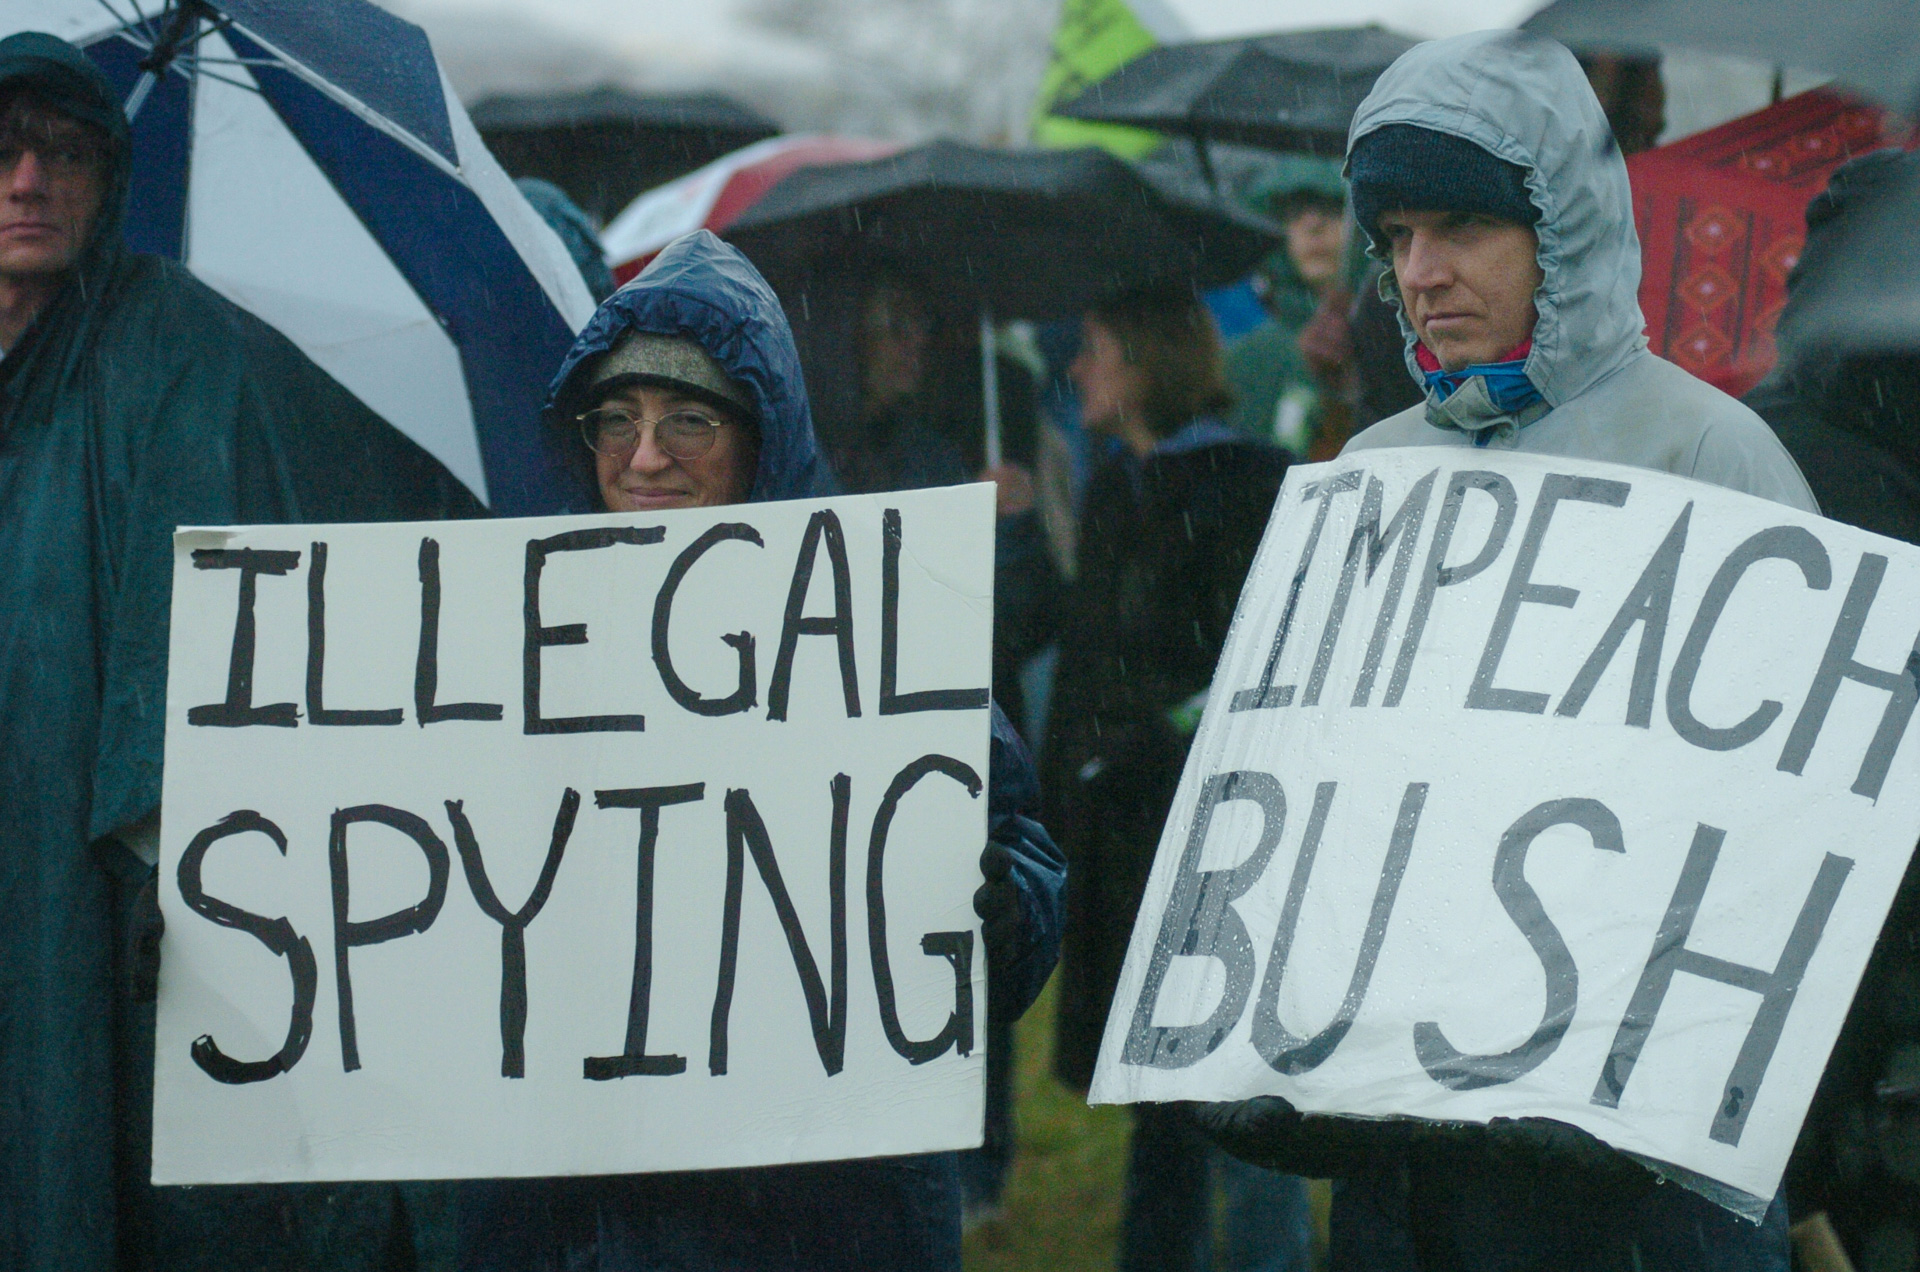 ILLEGAL
SPYING
IMPEACH
BUSH